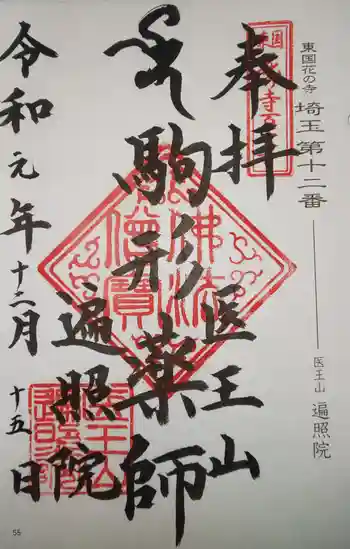 東国花の寺 埼玉第十二番
医王山 遍照院
奉拝
医王山
駒形薬師
遍照院
令和元年十二月十五日
佛法僧寶
56